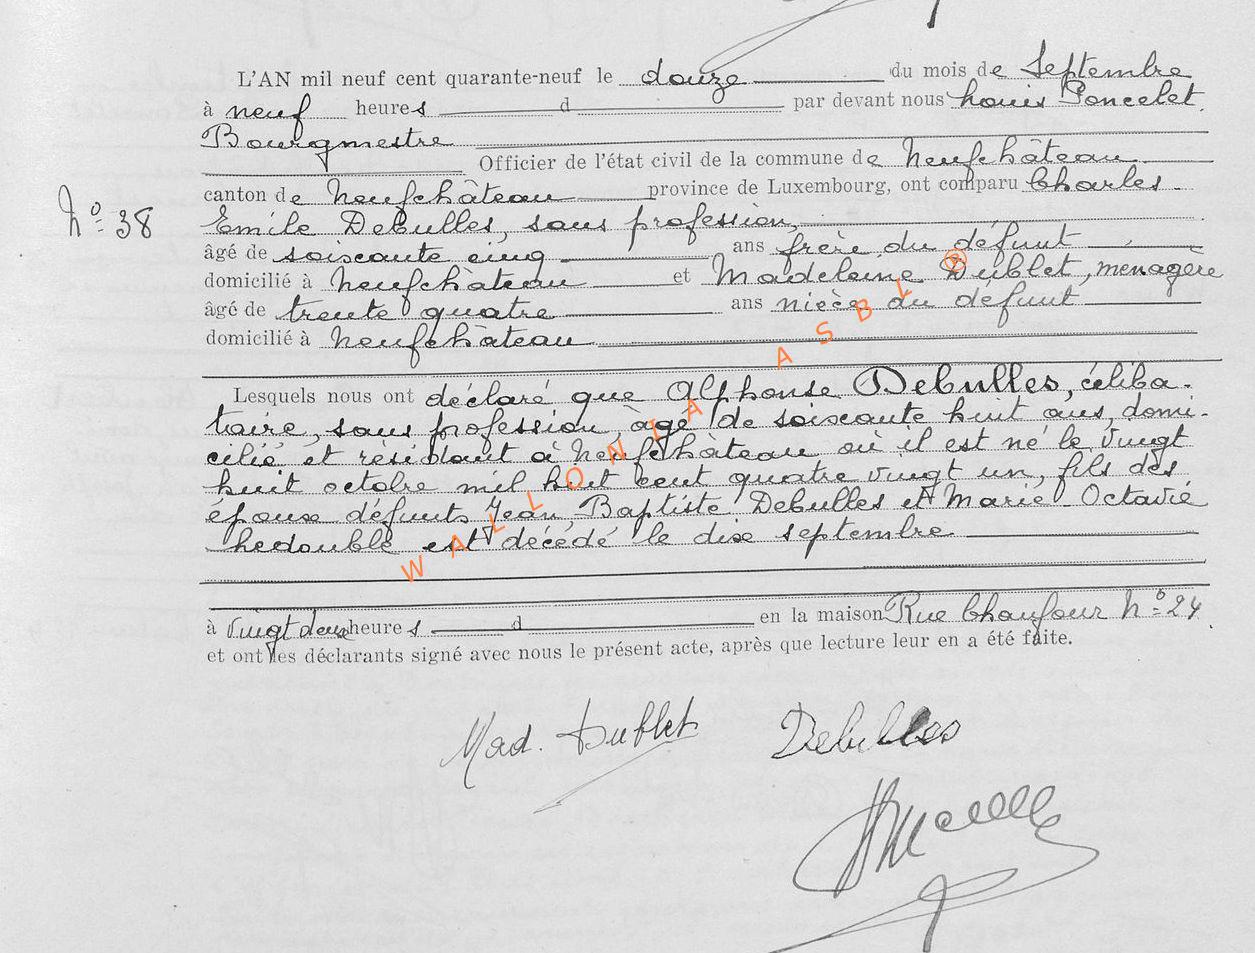 L'AN mil neuf cent quarante-neuf le douze du mois de Septembre
à neuf heures d par devant nous Louis Poncelet
Bourgmestre
Officier de l'état civil de la commune de Neufchâteau
canton de Neufchâteau province de Luxembourg, ont comparu Charles
N° 38 Emile Debulles, sans profession,
âgé de soixante cinq ans frère du défunt
domicilié à Neufchâteau et Madeleine Dublet, menagère
âgé de trente quatre ans nièce du défunt
domicilié à Neufchâteau
Lesquels nous ont déclaré que Alphonse Debulles, céliba-
taire, sans profession, âgé de soixante huit ans, domi-
cilié et résidant à Neufchâteau où il est né le vingt
huit octobre mil huit cent quatre vingt un, fils des
époux défunts Jean, Baptiste Debulles et Marie Octavie
Ledouble est décédé le dix septembre
à vingt deux heures d en la maison Rue Chaufour N° 24
et ont les déclarants signé avec nous le présent acte, après que lecture leur en a été faite.
Mad. Dublet Debulles
WALLONIA ASBL ®